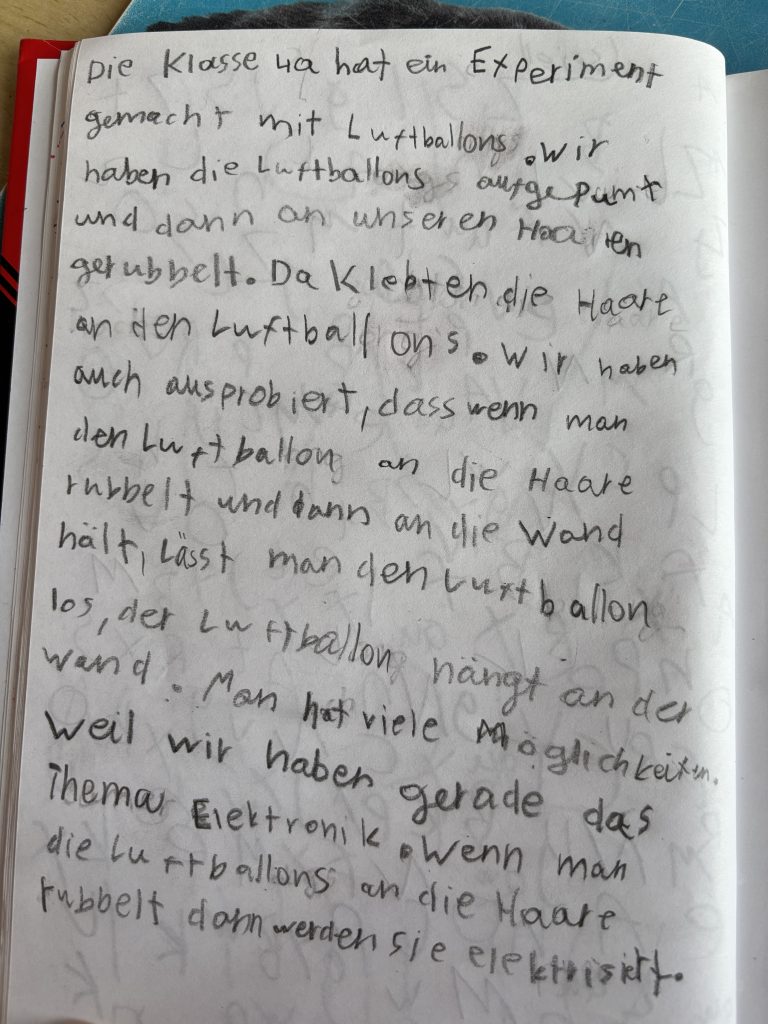 Die Klasse 4a hat ein Experiment
gemacht mit Luftballons. Wir
haben die Luftballons aufgepumt
und dann an unseren Haaren
gerubbelt. Da Klebten die Haare
an den Luftballons. Wir haben
auch ausprobiert, dass wenn man
den Luftballon an die Haare
rubbelt und dann an die Wand
hält, Lässt man den Luftballon
los, der Luftballon hängt an der
Wand. Man hat viele Möglichkeiten.
Weil wir haben gerade das
Thema Elektronik. Wenn man
die Luftballons an die Haare
rubbelt dann werden sie elektrisiert.